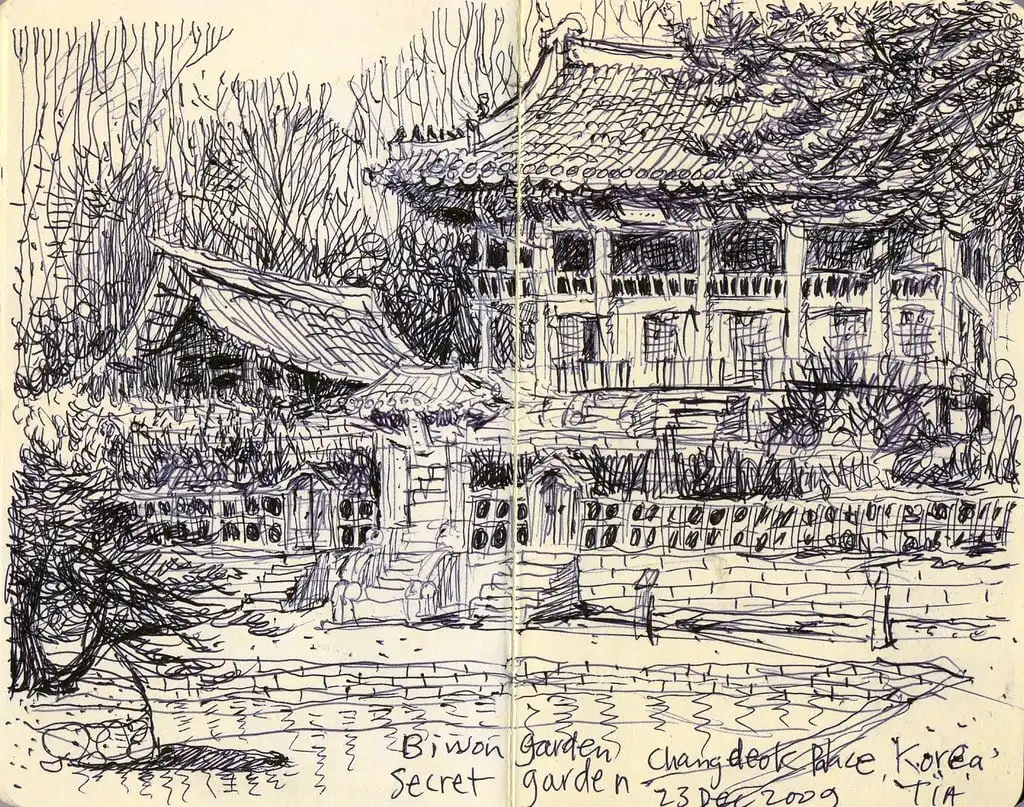 Biwon garden
Secret garden
Changdeok Palace, Korea
23 Dec 2009 TIA